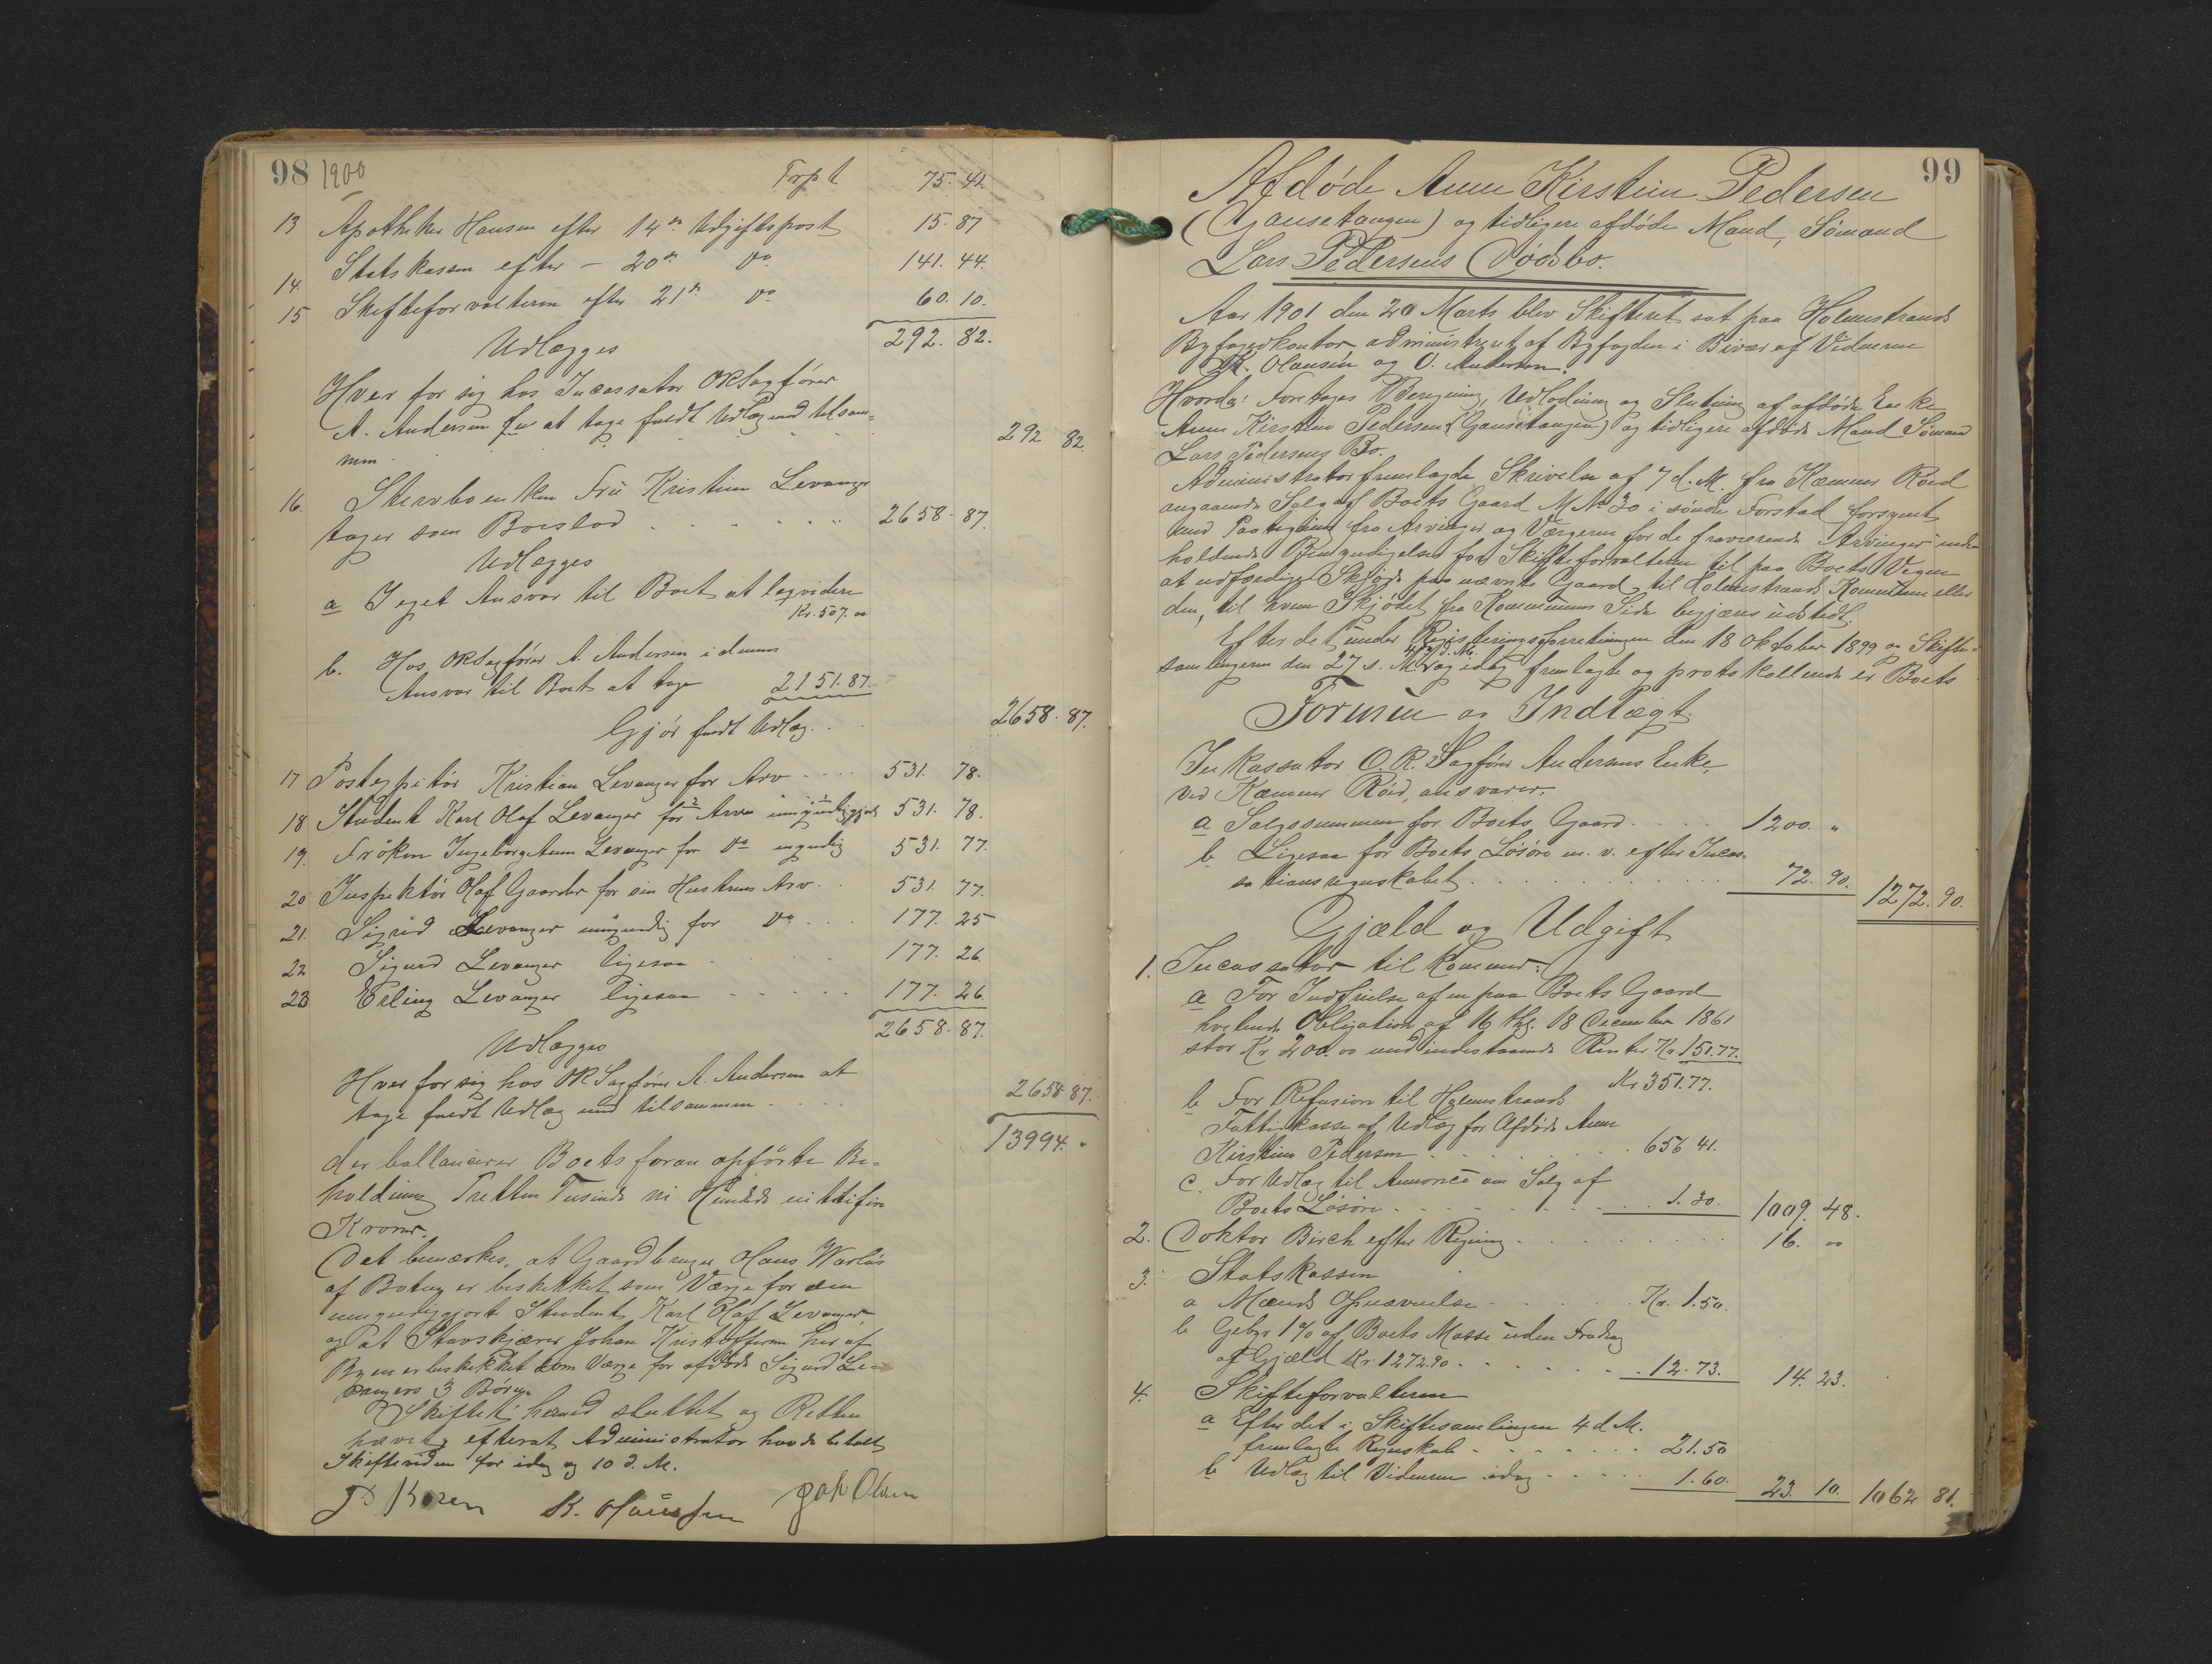 98 1900
Trpt 75. 41.
13 Apotheker Hansen efter 14de Udgiftspost 15. 87
14. Statskassen efter — 20de Do 141. 44.
15 Skifteforvalteren efter 21de Do 60. 10.
292. 82.
Udlægges
Hver for sig hos Incassator ORSagfører
A. Andersen at tage fuldt Udlæg med tilsam=
men. 292 82
16. Stervboenken Fru Kristine Levanger
tager som Boeslod 2658. 87.
Udlægges
a I eget Ansvar til Boet at liqvidere
Kr. 507. 00
b. Hos ORSagfører A. Andersen i dennes
Ansvar til Boet at tage 2151. 87.
Gjør fuldt Udlæg. 2658. 87.
17 Postexpeditør Kristian Levanger for Arv 531. 78.
18 Student Karl Olaf Levanger for Arv umyndiggjort 531. 78.
19. Frøken Ingeborg Anne Levanger for Do myndig 531. 77.
20 Inspektør Olaf Gaarder for sin Hustrus Arv. 531. 77.
21. Sigrid Levanger umyndig for Do 177. 25
22 Sigurd Levanger ligesaa 177. 26
23 Erling Levanger ligesaa 177. 26.
2658. 87.
Udlægges
Hver for sig hos ORSagfører A. Andersen at
tage fuldt Udlæg med tilsammen 2658 87.
13994. "
der ballancerer Boets foran opførte Be=
holdning Tretten Tusinde ni Hundrede nittifire
Kroner.
Det bemærkes, at Gaardbruger Hans Warløs
af Botne er beskikket som Værge for den
umyndiggjorte Student Karl Olaf Levanger,
og at Stavskjærer Johan Kristoffersen her af
Byen er beskikket som Værge for afdøde Sigurd Le=
vangers 3 Børn.
Skiftet hermed sluttet og Retten
hævet, efterat Administrator havde betalt
Skiftevidnerne for idag og 10 d. M.
J Koren K. Olaussen Jak Olsen
99
Afdøde Anne Kirstine Pedersen
(Gausetangen) og tidligere afdøde Mand, Sømand
Lars Pedersens Dødsbo.
Aar 1901 den 20 Marts blev Skifteret sat paa Holmestrands
Byfogedkontor administreret af Byfogden i Bivær af Vidnerne
K. Olausen og O. Andersen.
Hvorda: Foretages Beregning, Udlodning og Slutning af afdøde Enke
Anne Kirstine Pedersen (Gausetangen) og tidligere afdøde Mand Sømand
Lars Pedersens Bo.
Administrator fremlagde Skrivelse af 7 d. M. fra Kæmner Röed
angaaende Salg af Boets Gaard M No 30 i søndre Forstad forsynet
med Paategning fra Arvinger og Værgerne for de fraværende Arvinger inde-
holdende Bemyndigelse for Skifteforvalteren til paa Boets Vegne
at udfærdige Skjøde paa nævnte Gaard til Holmestrands Kommune eller
den, til hvem Skjødet fra Kommunens Side begjæres udstedt.
Efter det under Registreringsforretningen den 18 Oktober 1899 og Skifte=
samlingerne den 27 s. M., 4 d. M. og idag fremlagte og protokollerede er Boets
Formue og Indtægt.
Inkassator O. R. Sagfører Andersens Enke,
ved Kæmner Röed, ansvarer:
a Salgssummen for Boets Gaard 1200. "
b Ligesaa for Boets Løsøre m. v. efter Incas-
sationsregnskabet 72. 90. 1272. 90.
Gjæld og Udgift
1. Incassator til Kæmner:
a For Indfrielse af en paa Boets Gaard
heftende Obligation af 16 thg. 18 December 1861
stor Kr 200. 00 med indestaaende Renter Kr. 151.77.
Kr 351.77.
b For Refusion til Holmestrands
Fattigkasse af Udlæg for Afdøde Anne
Kirstine Pedersen 656 41.
c. For Udlæg til Annonce om Salg af
Boets Løsøre 1.30. 1009. 48.
2. Doktor Birch efter Regning 16. 00
3. Statskassen
a Mænds Opnævnelse Kr. 1.50.
b Gebyr 1% af Boets Masse uden Fradrag
af Gjæld Kr. 1272.90 12.73. 14. 23.
4. Skifteforvalteren
a Efter det i Skiftesamlingen 4 d M.
fremlagte Regnskab 21.50
b Udlæg til Vidnerne idag 1.60. 23. 10. 1062 81.